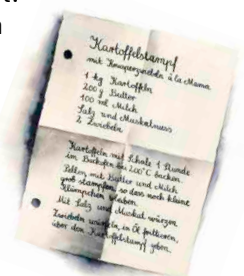 Kartoffelstampf
mit Knusperzwiebeln à la Mama
1 kg Kartoffeln
200 g Butter
100 ml Milch
Salz und Muskatnuss
2 Zwiebeln
Kartoffeln mit Schale 1 Stunde
im Backofen bei 200°C backen.
Pellen, mit Butter und Milch
grob stampfen, so dass noch kleine
Klümpchen bleiben.
Mit Salz und Muskat würzen.
Zwiebeln würfeln, in Öl frittieren,
über den Kartoffelstampf geben.